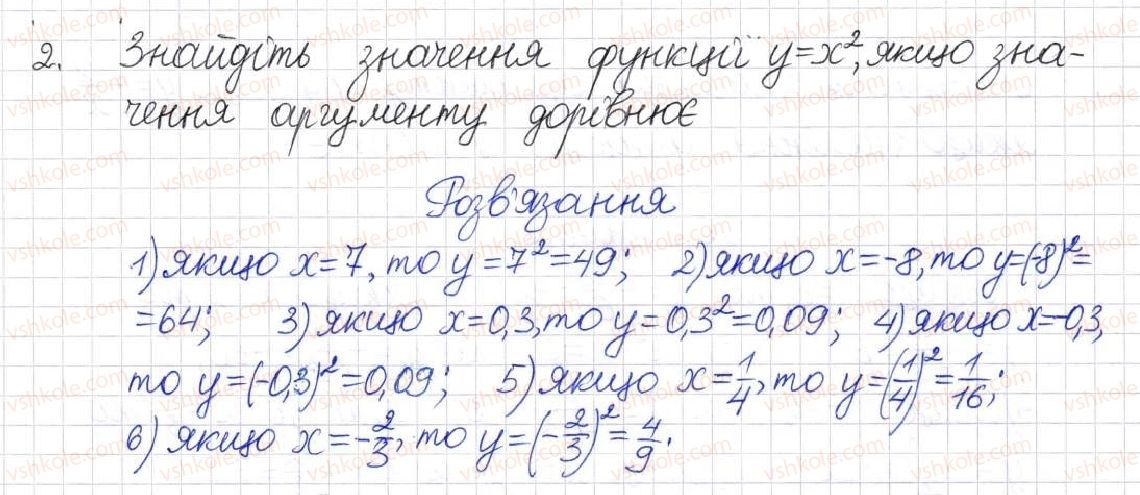 2. Знайдіть значення функції y=x², якщо зна-
чення аргументу дорівнює
Розв'язання
1) якщо x=7, то y=7²=49; 2) якщо x=-8, то y=(-8)²=
=64; 3) якщо x=0,3, то y=0,3²=0,09; 4) якщо x=-0,3,
то y=(-0,3)²=0,09; 5) якщо x=1/4, то y=(1/4)²=1/16;
6) якщо x=-2/3, то y=(-2/3)²=4/9.